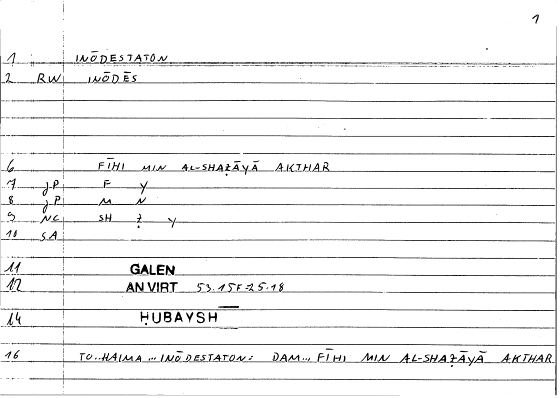 1
1 INŌDESTATON
2 RW INŌDĒS
6 FĪHI MIN AL-SHAẒĀYĀ AKTHAR
7 JP F Y
8 JP M N
9 NC SH Ẓ Y
10 SA
11 GALEN
12 AN VIRT 53.15F=25.18
14 ḤUBAYSH
16 TO..HAIMA...INŌDESTATON: DAM... FĪHI MIN AL-SHAẒĀYĀ AKTHAR